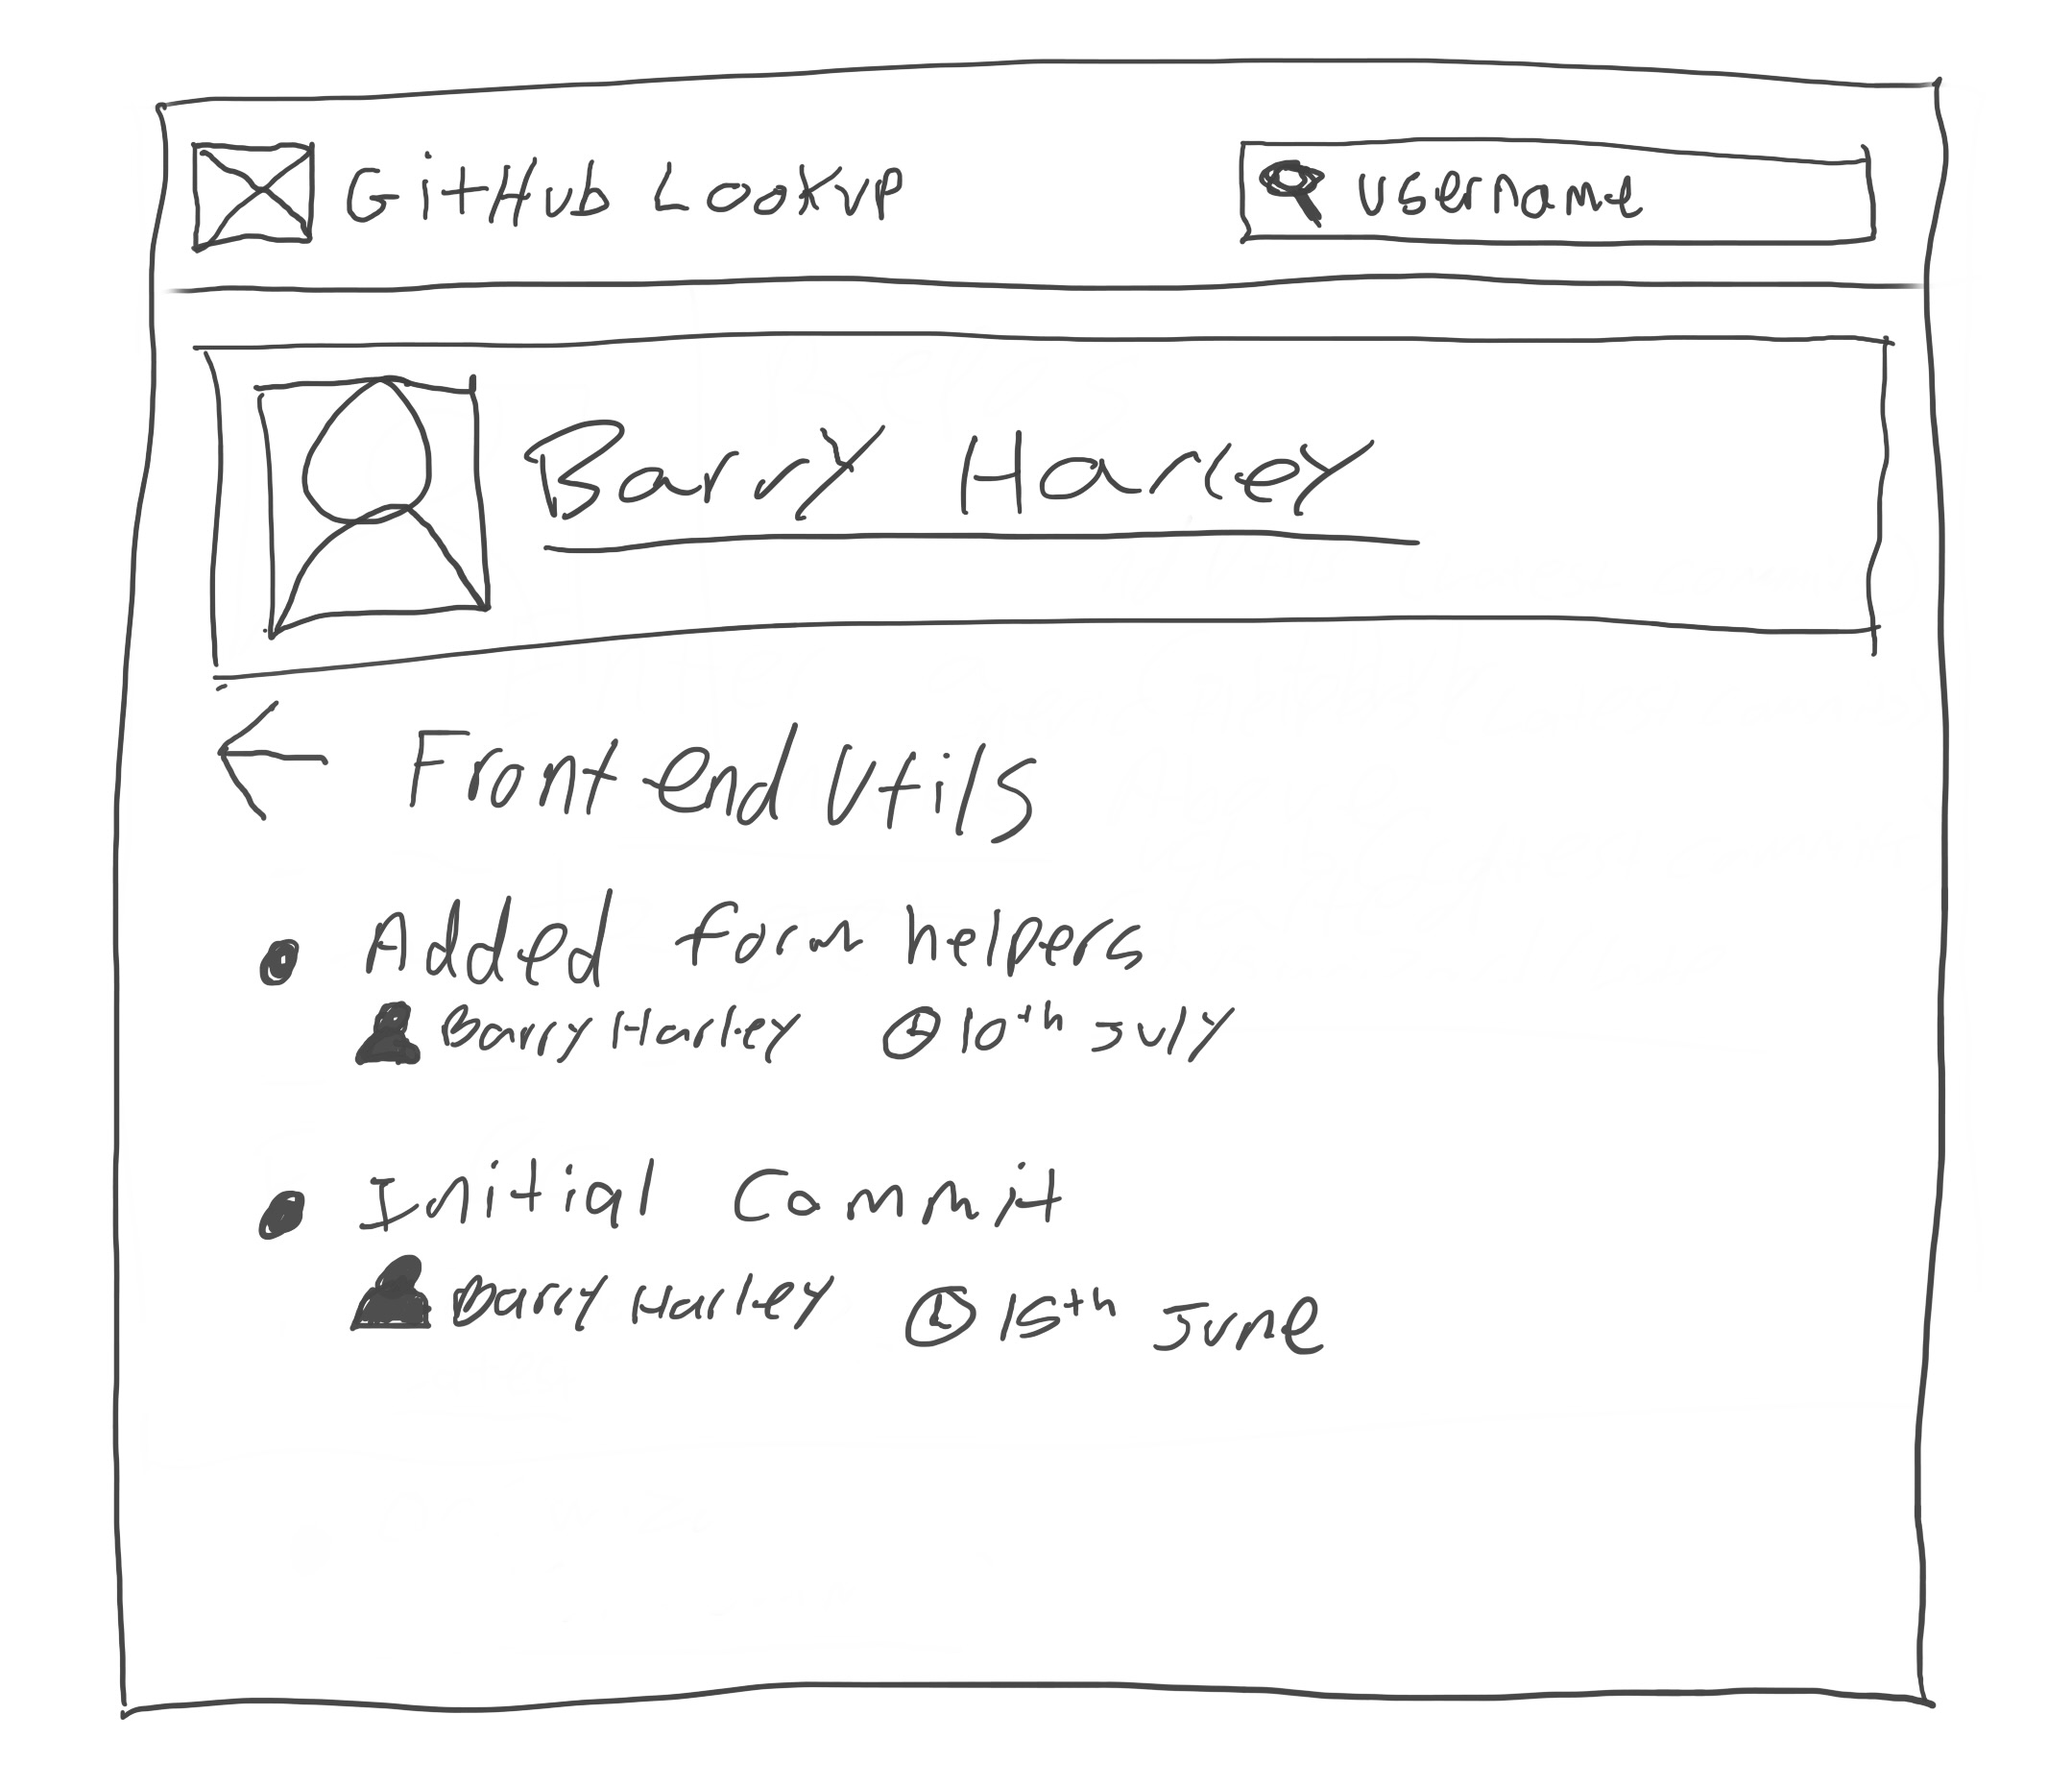 GitHub Lookup
Username
Barry Harley
Frontend Utils
Added form helpers
Barry Harley 10th July
Initial Commit
Barry Harley 15th June